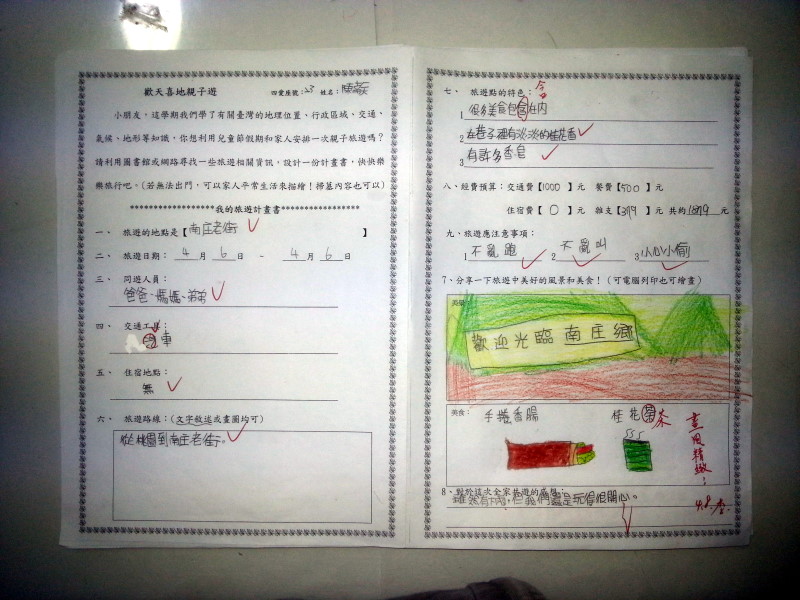 歡天喜地親子遊
四愛座號：23 姓名：陳
小朋友，這學期我們學了有關臺灣的地理位置、行政區域、交通、
氣候、地形等知識，你想利用兒童節假期和家人安排一次親子旅遊嗎？
請利用圖書館或網路尋找一些旅遊相關資訊，設計一份計畫書，快快樂
樂旅行吧。(若無法出門，可以家人平常生活來描繪！掃墓內容也可以)
******************我的旅遊計畫書******************
一、 旅遊的地點是【南庄老街】
二、 旅遊日期： 4 月 6 日 - 4 月 6 日
三、 同遊人員：
爸爸、媽媽、弟弟
四、 交通工具：
車
五、 住宿地點：
無
六、 旅遊路線：(文字敘述或畫圖均可)
從桃園到南庄老街。
七、 旅遊點的特色：
含
1 很多美食包含在內
2 在巷子裡有淡淡的桂花香
3 有許多香皂
八、經費預算：交通費【1000】元 餐費【500】元
住宿費【0】元 雜支【319】元 共約1819元
九、旅遊應注意事項：
1 不亂跑 2 不亂叫 3 小心小偷
7、分享一下旅遊中美好的風景和美食！(可電腦列印也可繪畫)
美景：
歡迎光臨南庄鄉
美食： 手捲香腸 桂花
茶
畫風精緻！
8、對於這次全家旅遊的感想：
雖然有下雨，但我們還是玩得很開心。